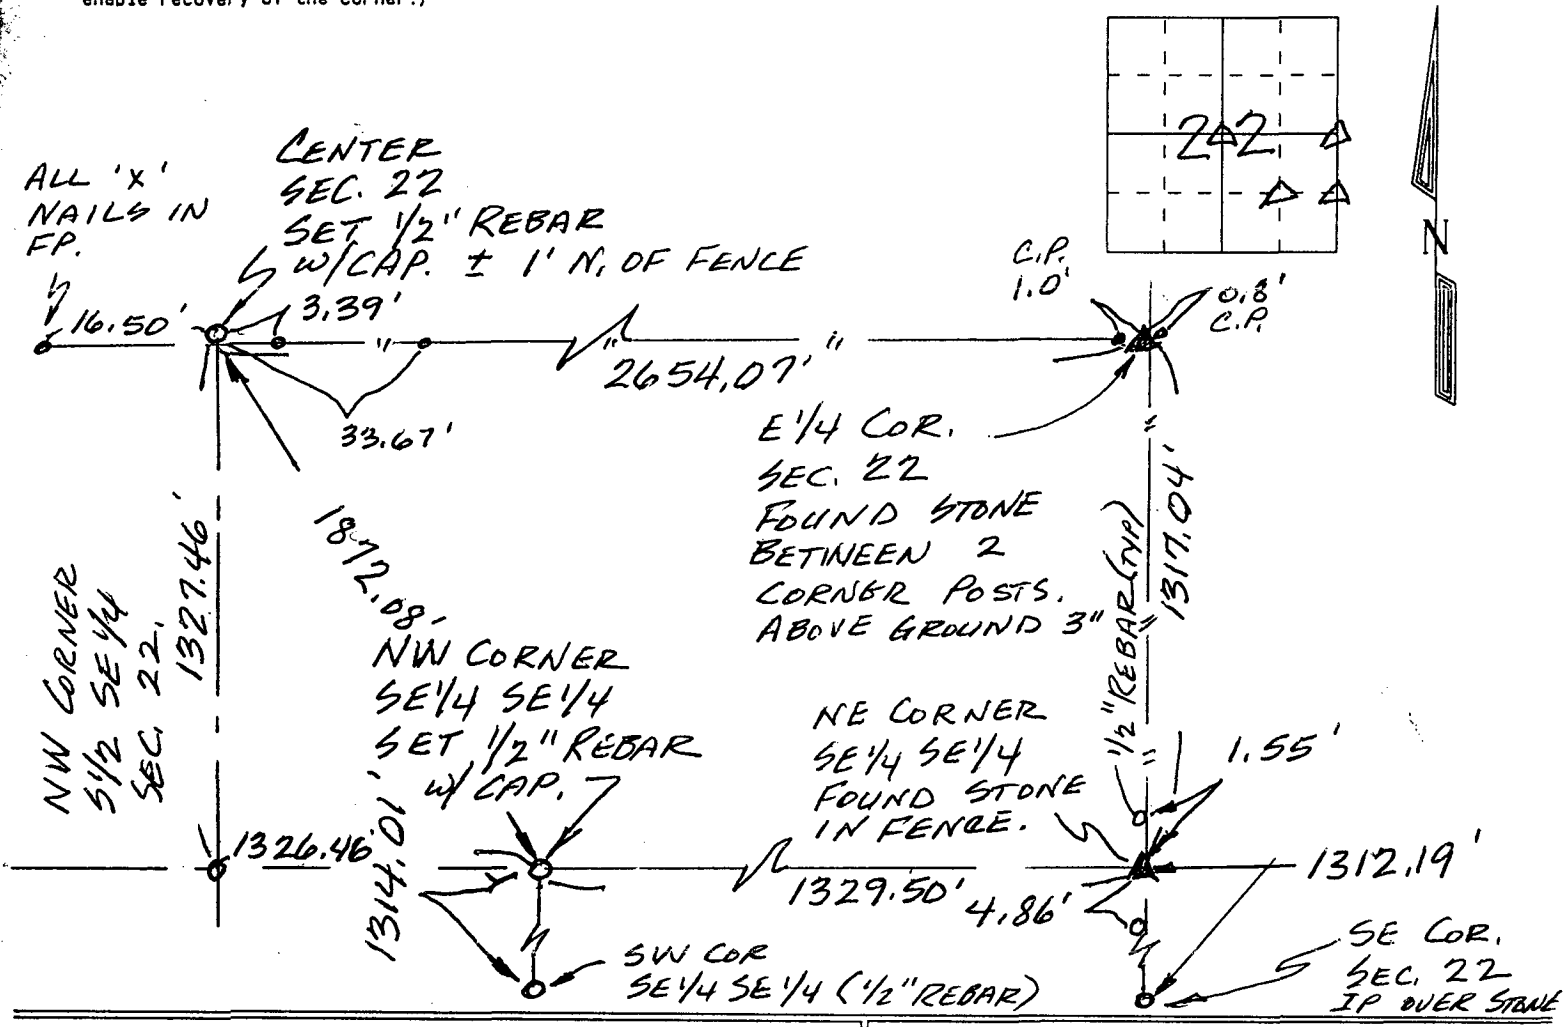 enable recovery of the corner.)
22
N
ALL 'X'
NAILS IN
FP.
CENTER
SEC. 22
SET 1/2" REBAR
W/CAP. ± 1' N. OF FENCE
C.P.
1.0'
0.8'
C.P.
16.50'
3.39'
2654.07'
33.67'
E 1/4 COR.
SEC. 22
FOUND STONE
BETWEEN 2
CORNER POSTS.
ABOVE GROUND 3"
1/2" REBAR (TYP)
1317.04'
1872.08'
1327.46'
NW CORNER
S1/2 SE1/4
SEC. 22.
NW CORNER
SE1/4 SE1/4
SET 1/2" REBAR
W/ CAP.
NE CORNER
SE1/4 SE1/4
FOUND STONE
IN FENCE.
1.55'
1326.46'
1314.01'
1329.50'
4.86'
1312.19'
SW COR
SE1/4 SE1/4 (1/2" REBAR)
SE COR.
SEC. 22
IP OVER STONE